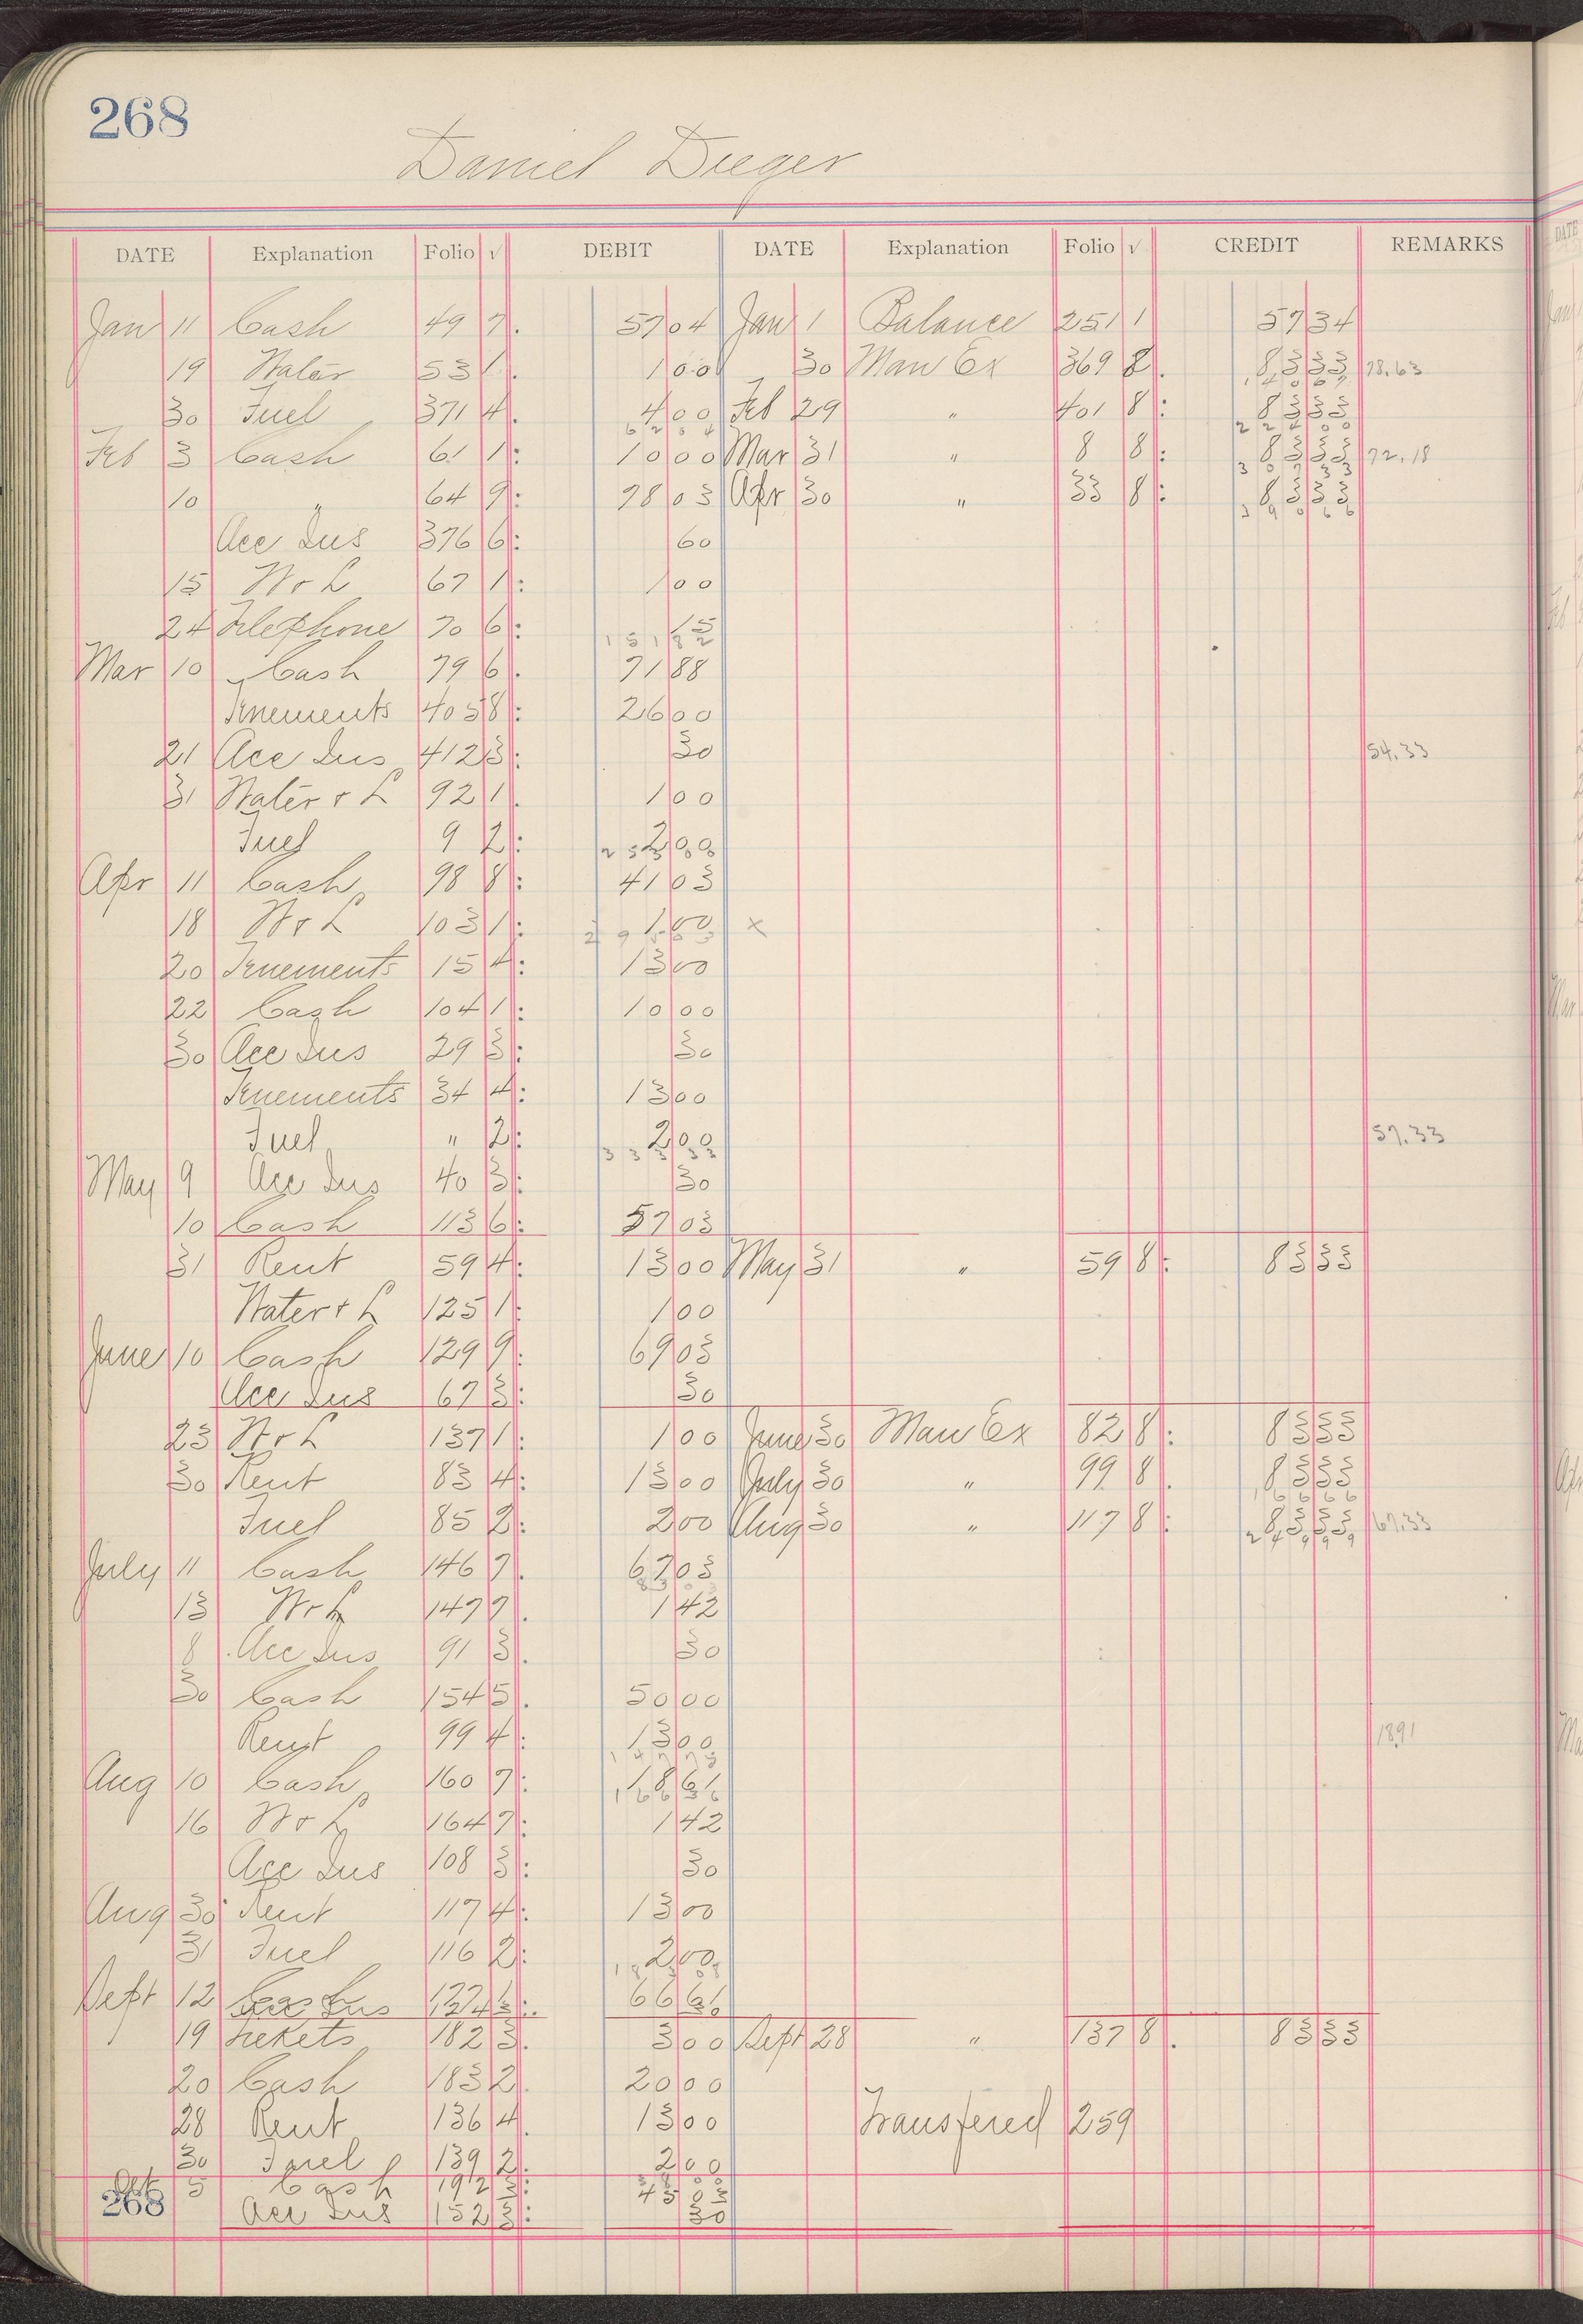 268
Daniel Dieger
DATE Explanation Folio √ DEBIT DATE Explanation Folio √ CREDIT REMARKS
Jan 11 Cash 49 7 57 04 Jan 1 Balance 251 1 57 34
19 Water 53 1 1 00 30 Man Ex 369 8 83 33 78.63
30 Fuel 371 4 4 00 Feb 29 " 401 8 83 33
Feb 3 Cash 61 1 10 00 Mar 31 " 8 8 83 33 72.18
10 " 64 9 78 03 Apr 30 " 33 8 83 33
Acc Ins 376 6 60
15 W & L 67 1 1 00
24 Telephone 70 6 15
Mar 10 Cash 79 6 71 88
Tenements 405 8 26 00
21 Acc Ins 412 3 30 54.33
31 Water & L 92 1 1 00
Fuel 9 2 2 00
Apr 11 Cash 98 8 41 03
18 W & L 103 1 1 00 x
20 Tenements 15 4 13 00
22 Cash 104 1 10 00
30 Acc Ins 29 3 30
Tenements 34 4 13 00
Fuel " 2 2 00 57.33
May 9 Acc Ins 40 3 30
10 Cash 113 6 57 03
31 Rent 59 4 13 00 May 31 " 59 8 83 33
Water & L 125 1 1 00
June 10 Cash 129 9 69 03
Acc Ins 67 3 30
23 W & L 137 1 1 00 June 30 Man Ex 82 8 83 33
30 Rent 83 4 13 00 July 30 " 99 8 83 33
Fuel 85 2 2 00 Aug 30 " 117 8 83 33 67.33
July 11 Cash 146 7 67 03
13 W & L 147 7 1 42
8 Acc Ins 91 3 30
30 Cash 154 5 50 00
Rent 99 4 13 00 1891
Aug 10 Cash 160 7 18 61
16 W & L 164 7 1 42
Acc Ins 108 3 30
Aug 30 Rent 117 4 13 00
31 Fuel 116 2 2 00
Sept 12 Cash 66 61
19 Tickets 182 3 3 00 Sept 28 " 137 8 83 33
20 Cash 183 2 20 00
28 Rent 136 4 13 00 Transfered 259
30 Fuel 139 2 2 00
Oct 5 Cash 192 3 45 03
268 Acc Ins 152 3 30